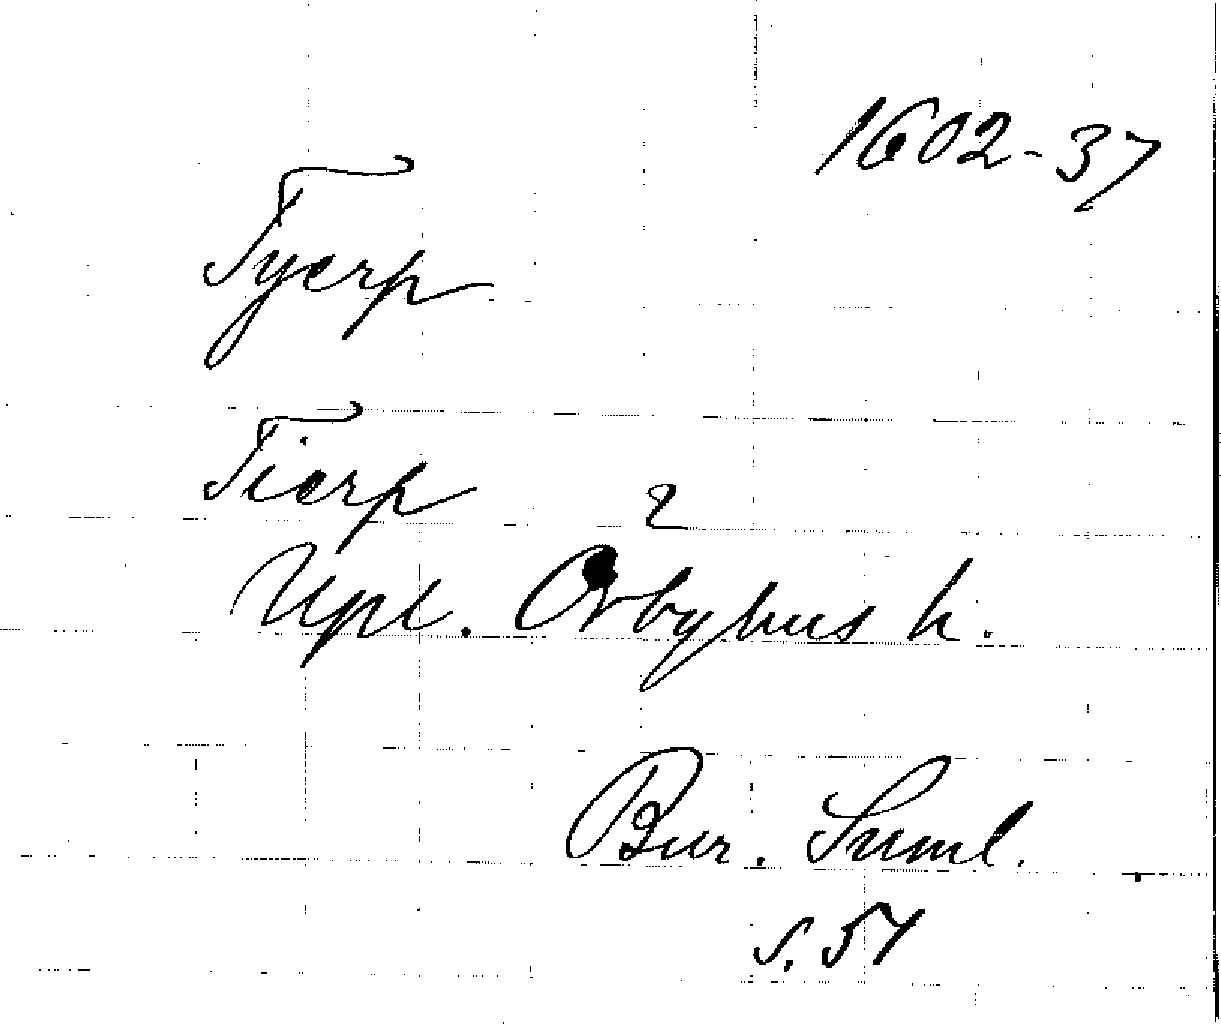 1602-37
Tyerp
Tierp 2
Upl. Örbyhus h.
Bur. Suml.
s. 54